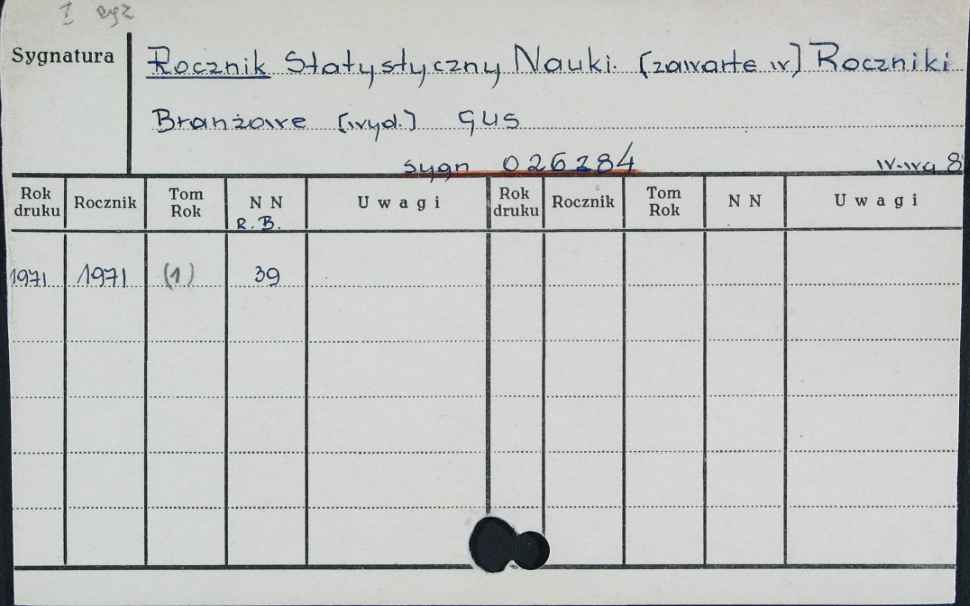 1 egz
Sygnatura
Rocznik Statystyczny Nauki. [zawarte w] Roczniki
Branżowe [wyd.] GUS
sygn 026284 W-wa 8
Rok druku Rocznik Tom Rok N N Uwagi Rok druku Rocznik Tom Rok N N Uwagi
R. B.
1971 1971 (1) 39